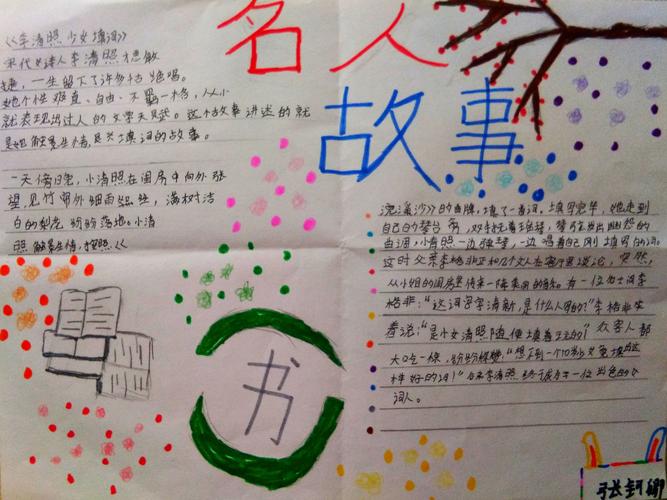 名人
故事
《李清照少女填词》
宋代女诗人李清照才思敏
捷，一生留下了许多千古绝唱。
她个性难直、自由、不羁一格，从小
就表现出过人的文学天赋。这个故事讲述的就
是她触景生情，是兴填词的故事。
一天傍晚，小清照在闺房中向外张
望，见竹帘外细雨丝丝，满树洁
白的梨花纷纷落地。小清
照触景生情，按照《
浣溪沙》的曲牌，填了一首词。填写完毕，她走到
自己的琴台旁，双手抚着瑶琴，琴弦发出幽怨的
曲调，小清照一边弹琴，一边唱着自己刚填写的词。
这时父亲李格非正和几个文人在客厅里谈论，突然，
从小姐的闺房里传来一阵美丽的音乐。有一位力士问李
格非：“这词写字清新，是什么人写的？”李格非笑
着说：“是小女清照随便填着玩的！”众客人都
大吃一惊，纷纷称赞：“想不到一个10岁少女竟填的这
样好的词！”后来李清照终于成为了一位出色的女
词人。
书